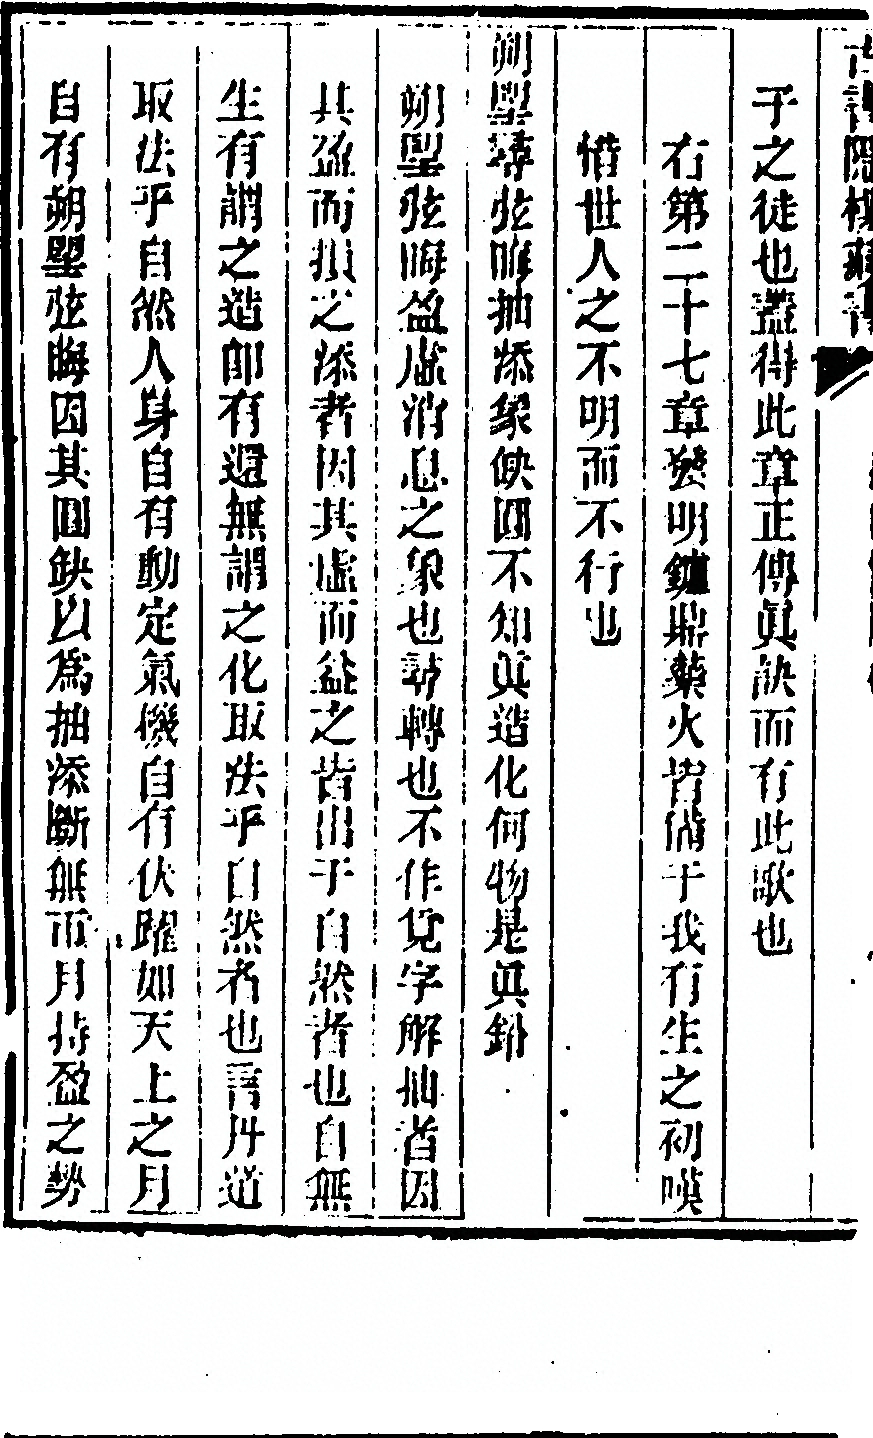 古書隱樓藏書
子之徒也蓋得此章正傳眞訣而有此歌也
右第二十七章發明鑪鼎藥火皆備于我有生之初嘆
惜世人之不明而不行也
朔望尋弦晦抽添象缺圓不知眞造化何物是眞鉛
朔望弦晦盈虛消息之象也尋轉也不作覓字解抽者因
其盈而損之添者因其虛而益之皆出于自然者也自無
生有謂之造卽有還無謂之化取法乎自然者也吾丹道
取法乎自然人身自有動定氣機自有伏躍如天上之月
自有朔望弦晦因其圓缺以爲抽添斷無而月持盈之勢